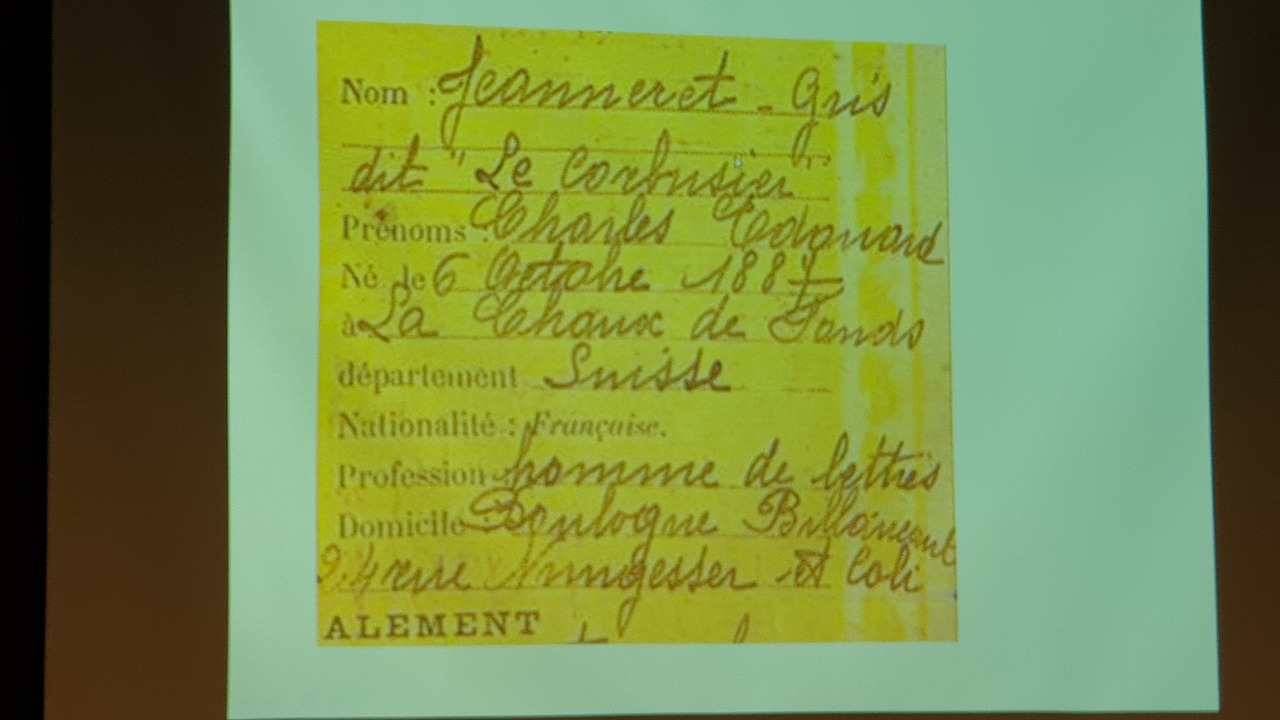 Nom : Jeanneret - Gris
dit "Le Corbusier"
Prénoms : Charles Edouard
Né le 6 Octobre 1887
à La Chaux de Fonds
département Suisse
Nationalité : Française.
Profession homme de lettres
Domicile : Boulogne Billancourt
24 rue Nungesser et Coli
ALEMENT